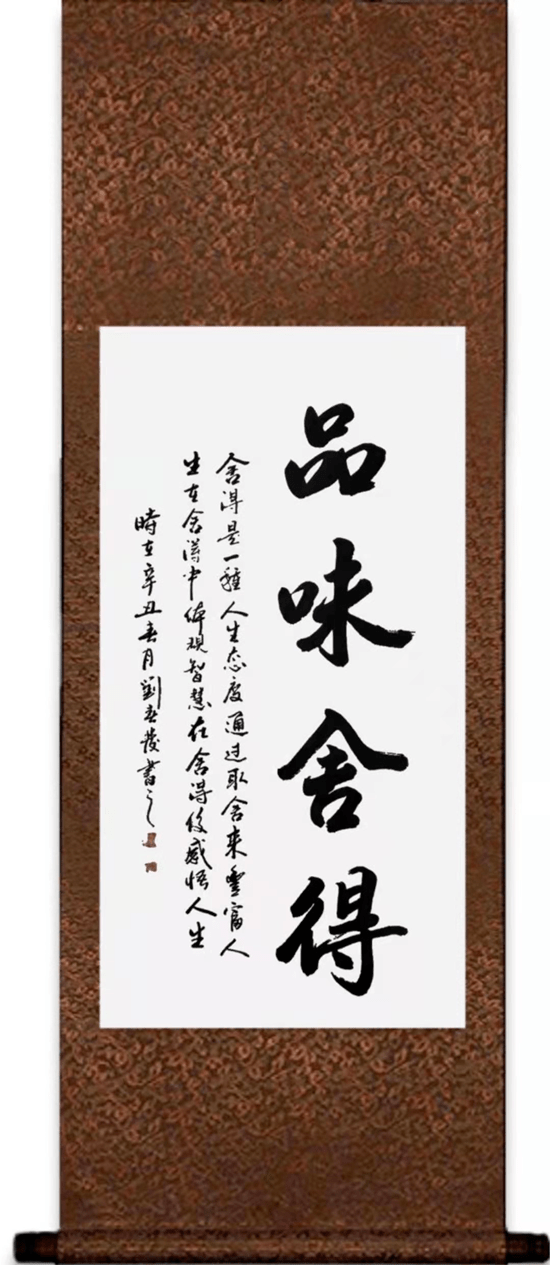 品味舍得
舍得是一種人生态度通过取舍来豐富人
生在舍得中体现智慧在舍得後感悟人生
時在辛丑春月劉春茂書之